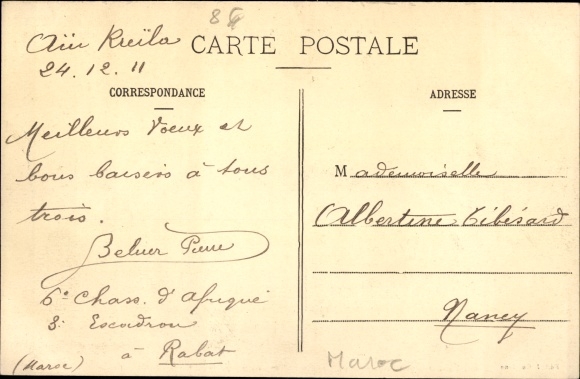 8
Aïn Kreïla
24.12.11
CARTE POSTALE
CORRESPONDANCE
Meilleurs Voeux et
bons baisers à tous
trois.
Pierre
6e Chass. d'Afrique
8e Escadron
à Rabat
(Maroc)
ADRESSE
Mademoiselle
Albertine Tibésard
Nancy
Maroc